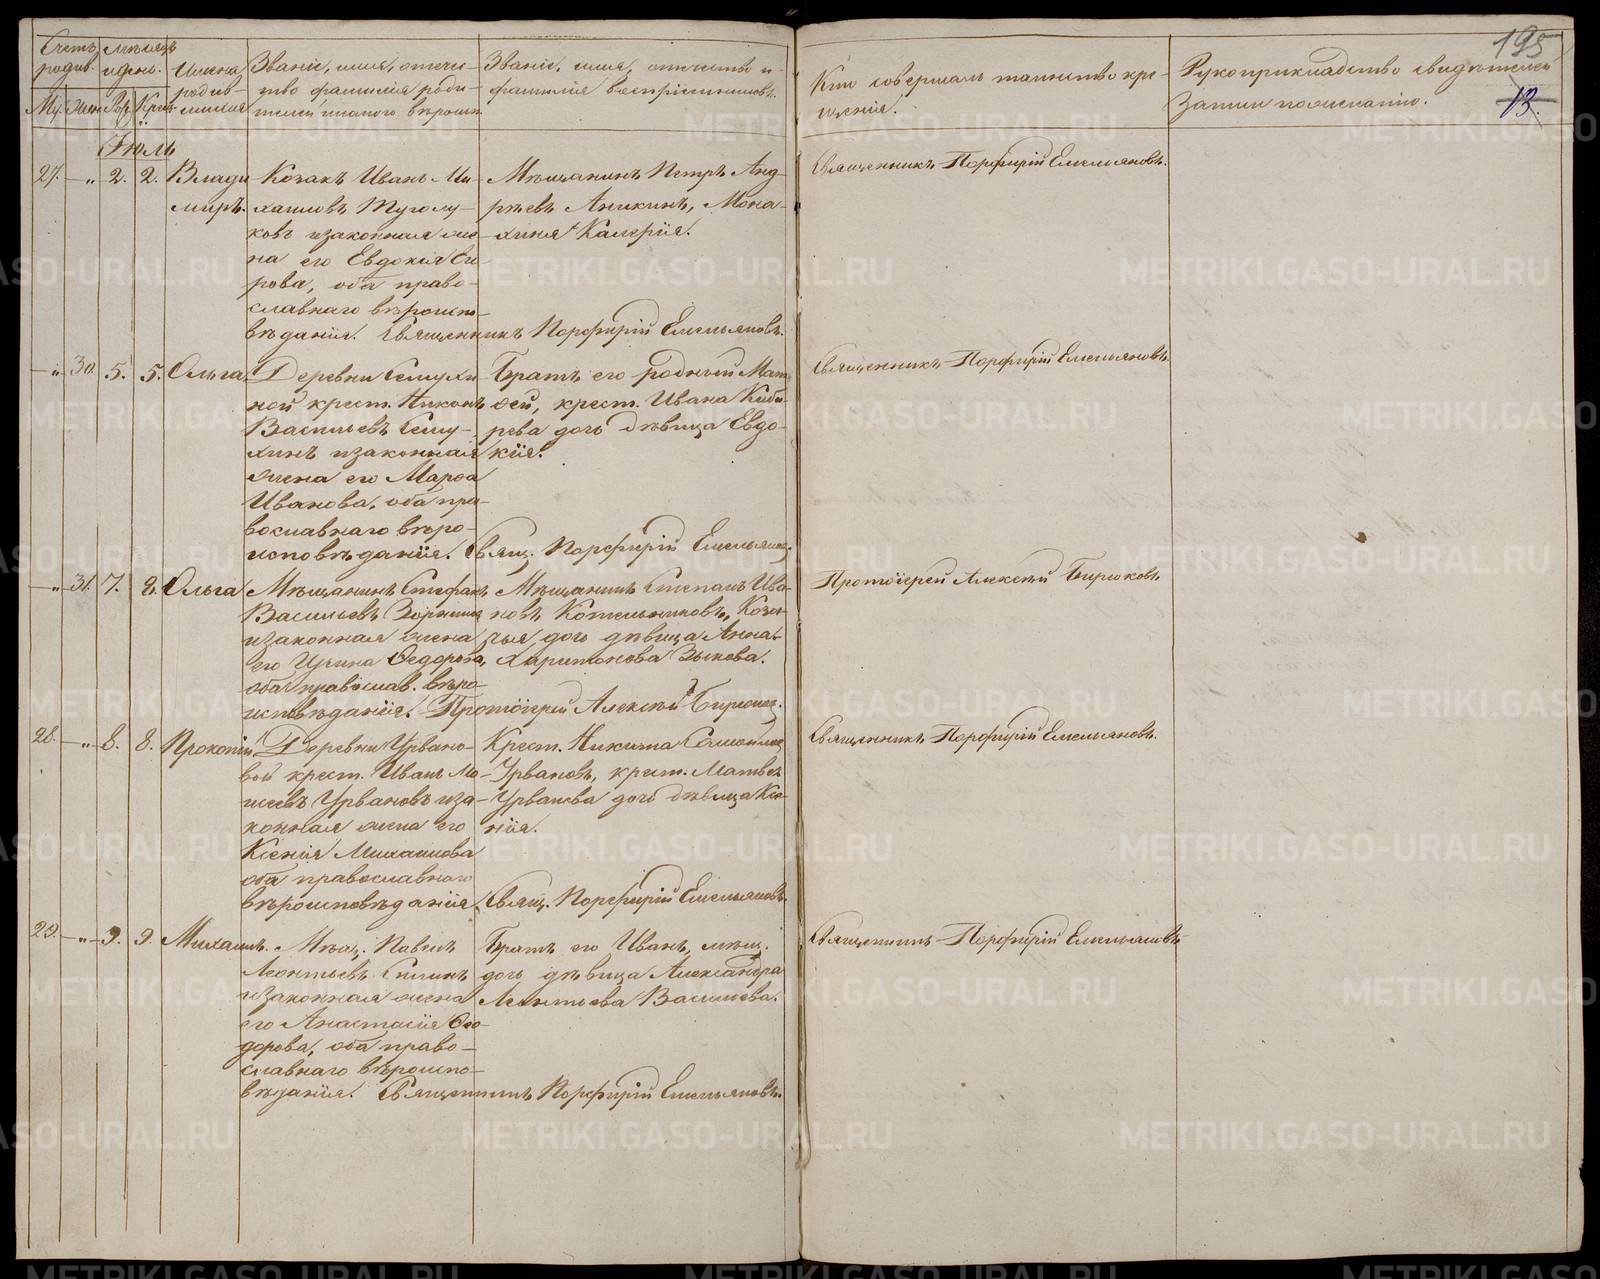 195
13.
Счетъ родив.
Мѣсяцъ и день.
Имена родив-
шихся
Званіе, имя, отече-
ство и фамилія роди-
телей и какого вѣроисп.
Званіе, имя, отчество и
фамилія воспріемниковъ.
Кто совершалъ таинство кре-
щенія.
Рукоприкладство свидѣтелей
записи по желанію.
Му. Жен. Рож. Крещ.
Іюль
27. — „ 2. 2. Влади
миръ.
Козакъ Иванъ Ми-
хаиловъ Туголу-
ковъ и законная же-
на его Евдокія
рова, оба право-
славнаго вѣроиспо-
вѣданія. Священникъ Порфирій Емельяновъ.
Мѣщанинъ Петръ Анд-
рѣевъ Аникинъ, Мона-
хиня Калерія.
Священникъ Порфирій Емельяновъ.
— „ 30. 5. 5. Ольга.
Деревни Семухи
ной крест. Никонъ
Васильевъ Сему-
хинъ и законная
жена его Марѳа
Иванова, оба пра-
вославнаго вѣро-
исповѣданія. Свящ. Порфирій Емельяновъ.
Братъ его родный Мат-
ѳей, крест. Ивана Киби-
рева дочь дѣвица Евдо-
кія.
Священникъ Порфирій Емельяновъ.
— „ 31. 7. 8. Ольга
Мѣщанинъ Стефанъ
Васильевъ
и законная жена
его Ирина Ѳедорова,
оба православ. вѣро-
исповѣданія. Протоіерей Алексѣй Бирюковъ.
Мѣщанинъ Степанъ Ива-
новъ Котельниковъ, Козач-
чья дочь дѣвица Анна
Харитонова Зыкова.
Протоіерей Алексѣй Бирюковъ
28. — „ 8. 8. Прокопій.
Деревни Урвано-
вой крест. Иванъ Мо-
исеевъ Урвановъ и за-
конная жена его
Ксенія Михаилова
оба православнаго
вѣроисповѣданія. Свящ. Порфирій Емельяновъ.
Крест. Никита Самойловъ
Урвановъ, крест. Матвѣя
Урванова дочь дѣвица Ксе-
нія.
Священникъ Порфирій Емельяновъ.
29. — „ 9. 9. Михаилъ.
Мѣщ. Павелъ
Леонтьевъ Силинъ
и законная жена
его Анастасія Ѳео-
дорова, оба право-
славнаго вѣроиспо-
вѣданія. Священникъ Порфирій Емельяновъ.
Братъ его Иванъ, мѣщ.
дочь дѣвица Александра
Леонтьева Васильева.
Священникъ Порфирій Емельяновъ
METRIKI.GASO-URAL.RU